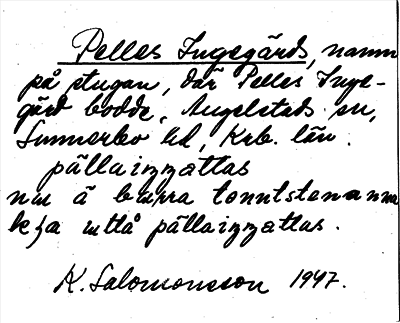 Pelles Ingegärds, namn
på stugan, där Pelles Inge-
gärd bodde, Angelstads sn,
Sunnerbo hd, Krb. län.
pällaiŋŋattas
nu ä burra tomtstenanna
utlå pällaiŋŋattas.
K. Salomonsson 1947.